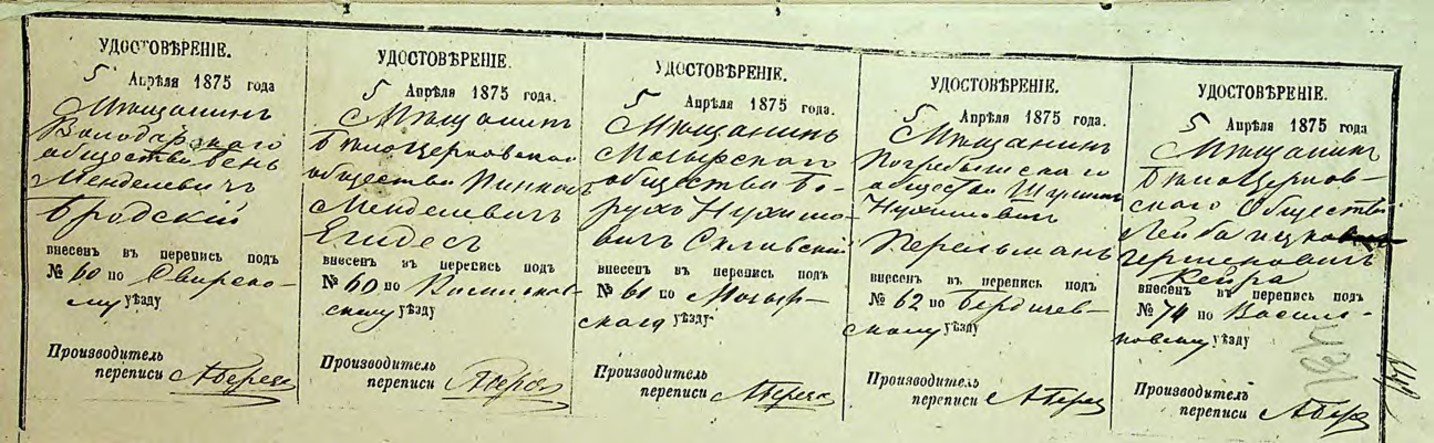 УДОСТОВѢРЕНІЕ.
5 Апрѣля 1875 года
Мѣщанинъ
Володарского
общества Бень
Менделевичъ
Бродскій
внесенъ въ перепись подъ
№ 60 по Свирско-
му уѣзду
Производитель
переписи
УДОСТОВѢРЕНІЕ.
5 Апрѣля 1875 года.
Мѣщанинъ
Бѣлоцерковскаго
общества Пинкасъ
Менделевичъ
Егидесъ
внесенъ въ перепись подъ
№ 60 по Васильков-
скому уѣзду
Производитель
переписи
УДОСТОВѢРЕНІЕ.
5 Апрѣля 1875 года.
Мѣщанинъ
Мозырскаго
общества Бо-
рухъ Нухимо-
вичъ Скливскій
внесенъ въ перепись подъ
№ 61 по Мозыр-
скаго уѣзду
Производитель
переписи
УДОСТОВѢРЕНІЕ.
5 Апрѣля 1875 года.
Мѣщанинъ
Погребыскаго
общества
Нухимовичъ
Перельманъ
внесенъ въ перепись подъ
№ 62 по Бердичев-
скому уѣзду
Производитель
переписи
УДОСТОВѢРЕНІЕ.
5 Апрѣля 1875 года
Мѣщанинъ
Бѣлоцерков-
скаго Общества
Лейба
Гершковичъ
Кейра
внесенъ въ перепись подъ
№ 74 по Василь-
ковскому уѣзду
Производитель
переписи